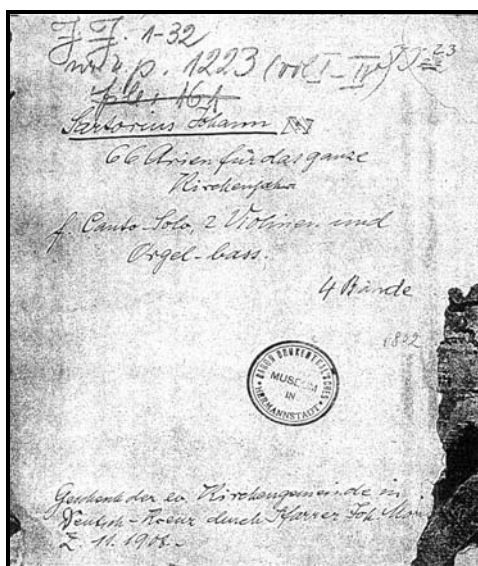 J. J. 1-32
nr. v. p. 1223 (vol I-IV)
23
file: 161
Sartorius Johann
66 Arien für das ganze
Kirchenjahr
f. Canto-Solo, 2 Violinen und
Orgel-bass.
4 Bände
1802
BARON BRUKENTHALISCHES
MUSEUM
IN
HERMANNSTADT
Geschenk der ev. Kirchengemeinde in
Deutsch-Kreuz durch Pfarrer Joh.
2. 11. 1908.-